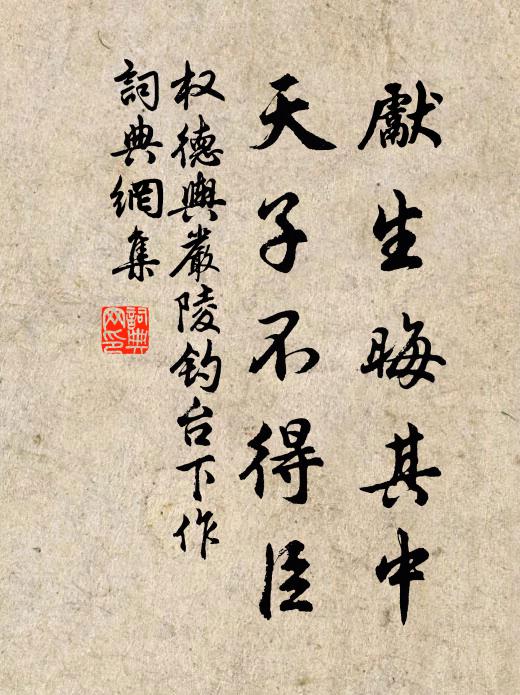 獻生晦其中
天子不得臣
权德輿嚴陵钓台下作
詞典網集
詞典
网印